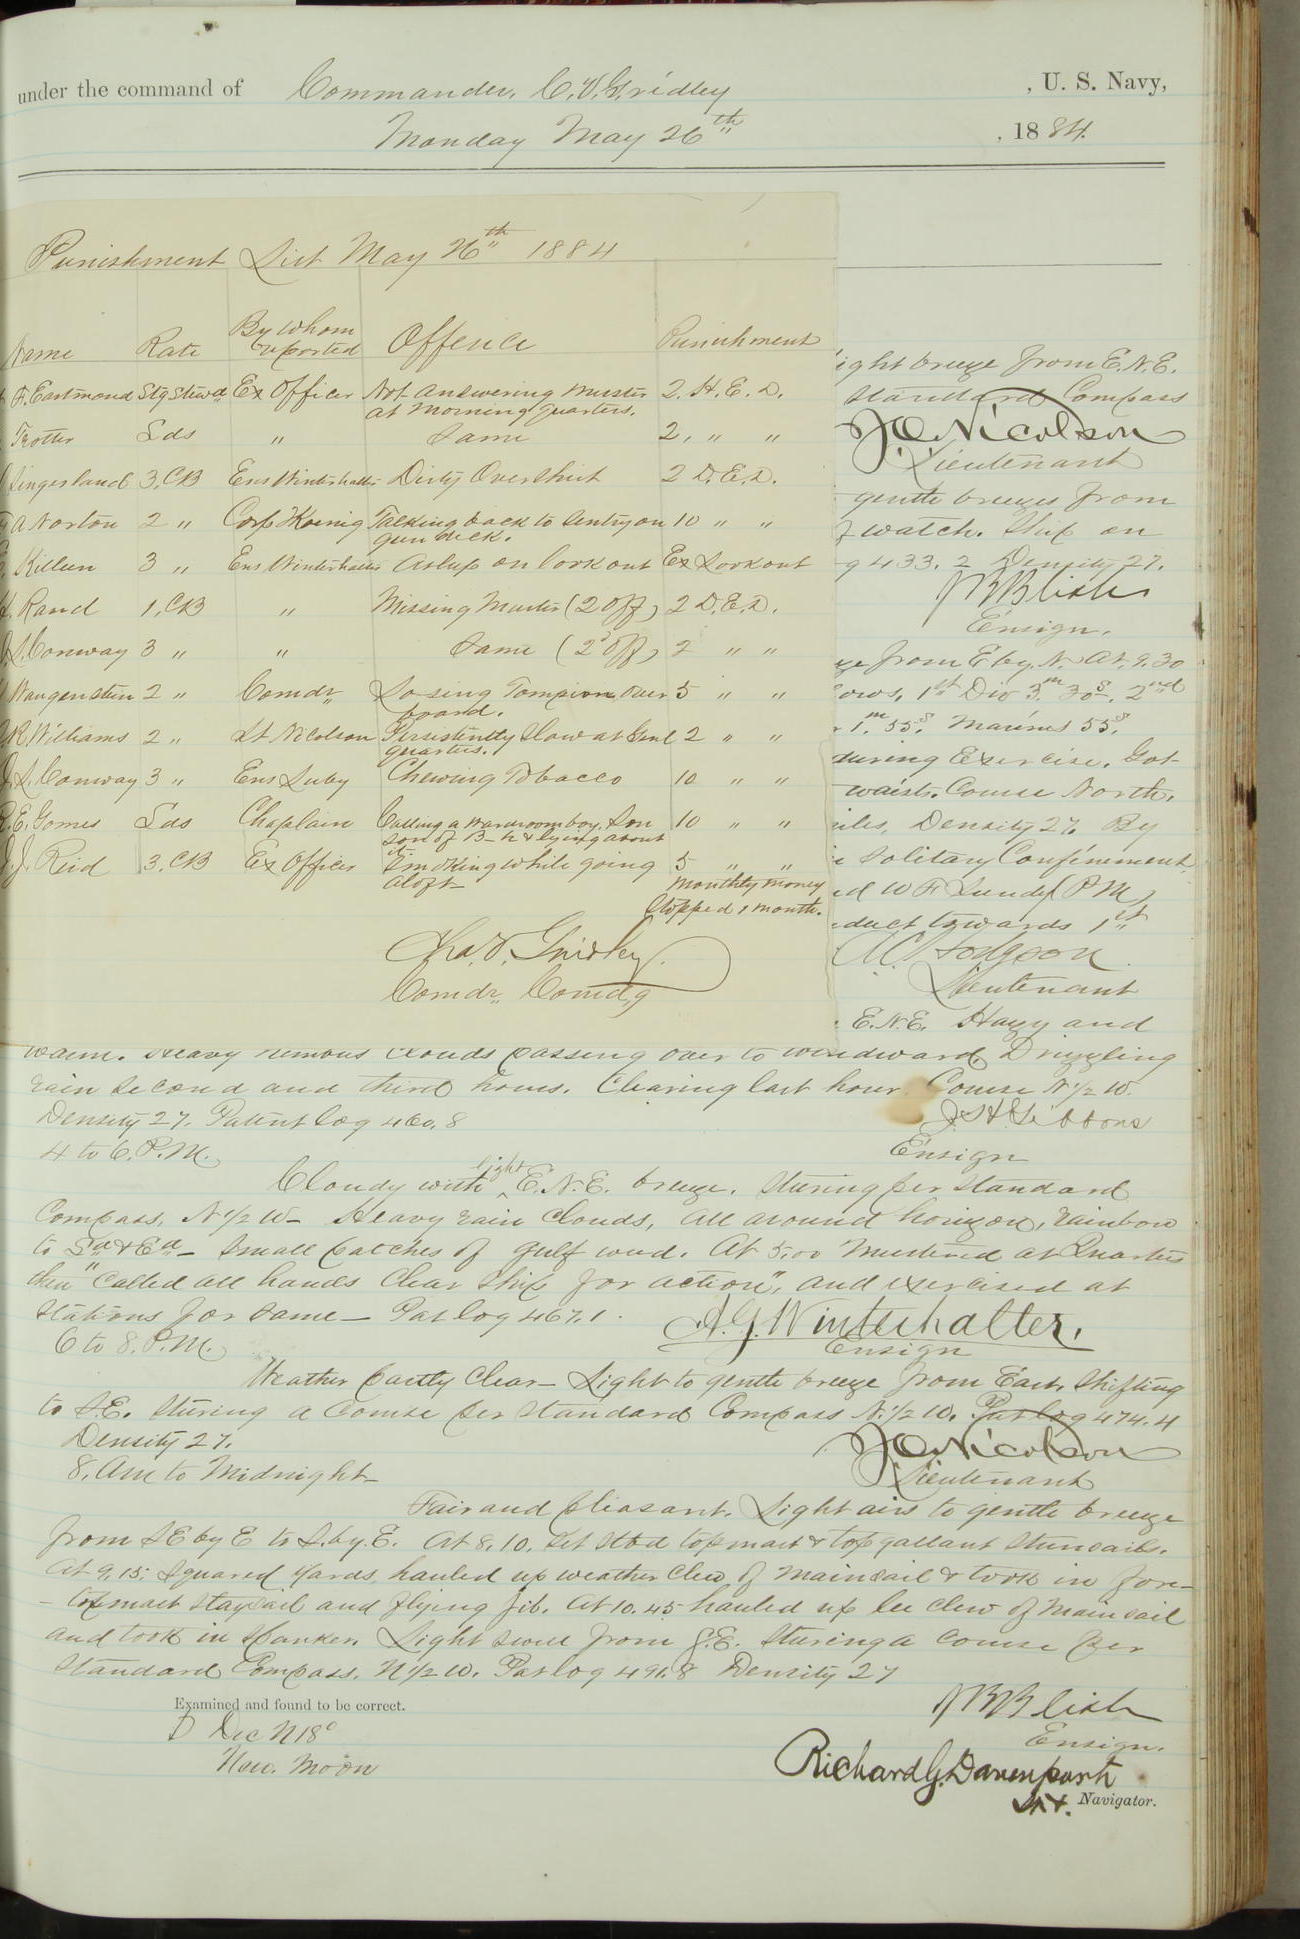 under the command of Commander, C. V. Gridley , U. S. Navy,
Monday May 26th , 1884.
Punishment List May 26th 1884
Name Rate By Whom reported Offence Punishment
F. Eastmond Stg Stewd Ex Officer Not answering muster at morning quarters. 2. H. E. D.
Trotter Lds " Same 2, " "
Singerland 3, CB Ens Winterhalter Dirty Overshirt 2 D. E. D.
A Norton 2 " Corp Koenig Talking back to Sentry on gun deck. 10 " "
Killeen 3 " Ens Winterhalter Asleep on lookout Ex Lookout
Rand 1, CB " Missing Muster (2 off) 2 D. E. D.
S. Conway 3 " " Same (2d off) 2 " "
Waugenstein 2 " Comdr Losing Tompion overboard. 5 " "
R. Williams 2 " Lt Nicolson Persistently slow at Genl quarters. 2 " "
J. S. Conway 3 " Ens Luby Chewing Tobacco 10 " "
R. E. Gomes Lds Chaplain Calling a wardroom boy, Son son of B—h & lying about it. 10 " "
J. J. Reid 3, CB Ex Officer Smoking while going aloft 5 " "
Monthly money
Stopped 1 month.
Chas. V. Gridley.
Comdr. Comd'g
ight breeze from E. N. E.
Standard Compass
J O Nicolson
Lieutenant
gentle breezes from
f watch. Ship on
g 433. 2 Density 27.
J B Blish
Ensign.
ze from E by. N. At 9.30
ows, 1st Div 3m 30s. 2nd
1m. 55s. Marines 55s.
during Exercise. Got
waists. Course North.
iles, Density 27. By
e Solitary Confinement
ed W F Lundy (P M)
duct towards 1st
A C Hodgson
Lieutenant
E. N. E. Hazy and
warm. Heavy nimbus clouds passing over to windward, Drizzling
rain second and third hours. Clearing last hour. Course N 1/2 W.
Density 27. Patent log 460.8 J. H. Gibbons
4 to 6. P. M. Ensign
Cloudy with light E. N. E. breeze. Steering per Standard
Compass, N 1/2 W— Heavy rain clouds, all around horizon, rainbow
to Sd & Ed— Small patches of gulf weed. At 5.00 Mustered at Quarters
then "called all hands clear ship for action", and exercised at
stations for same— Pat log 467.1. A. G. Winterhalter.
6 to 8. P. M. Ensign
Weather partly clear— Light to gentle breeze from East, shifting
to S.E. Steering a course per Standard Compass N. 1/2 W. Pat log 474.4
Density 27. J O Nicolson
8. Am to Midnight— Lieutenant
Fair and pleasant. Light airs to gentle breeze
from SE by E to S. by. E. At 8.10. set stbd topmast & topgallant stunsails.
At 9.15; squared yards, hauled up weather clew of mainsail & took in fore-
- topmast staysail and flying jib. At 10.45 hauled up lee clew of mainsail
and took in spanker. Light swell from S. E. Steering a course per
Standard Compass. N 1/2 W. Pat log 491.8 Density 27
J B Blish
Ensign.
Examined and found to be correct.
D Dec N 18°
New. Moon
Richard G. Davenport
Lt. Navigator.